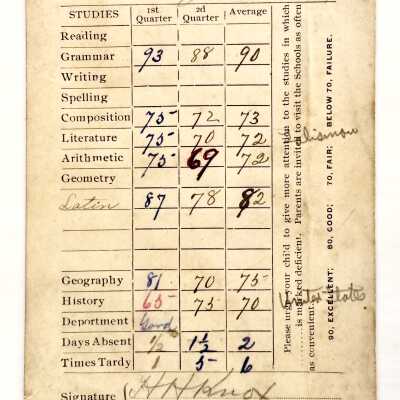 STUDIES 1st Quarter 2d Quarter Average
Reading
Grammar 93 88 90
Writing
Spelling
Composition 75 72 73
Literature 75 70 72
Arithmetic 75 69 72
Geometry
Latin 87 78 82
Geography 81 70 75
History 65 75 70
Deportment Good
Days Absent 1/2 1 1/2 2
Times Tardy 1 5 6
Signature H H Knox
Please urge your child to give more attention to the studies in which
is marked deficient. Parents are invited to visit the Schools as often
as convenient.
90, EXCELLENT; 80, GOOD; 70, FAIR; BELOW 70, FAILURE.